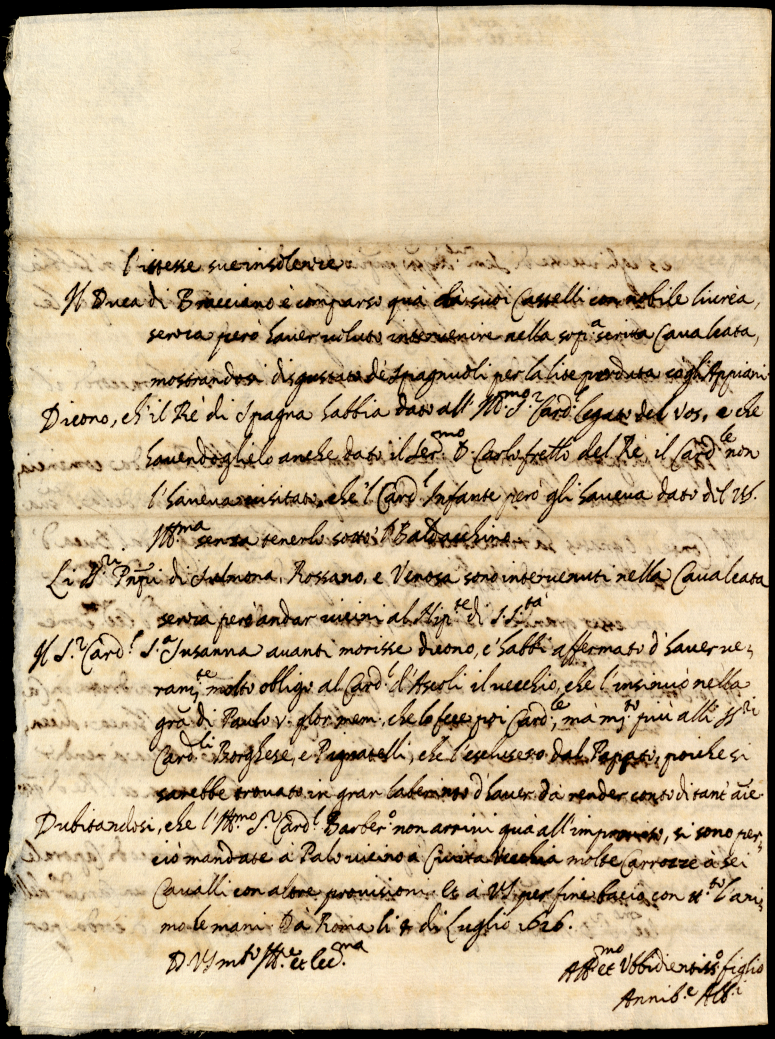 l'istesse sue insolenze
Il Duca di Bracciano è comparso quà da suoi Castelli con nobile livrea,
senza però haver voluto intervenire nella sop.ᵃ scritta Cavalcata,
mostrandosi disgustato de Spagnuoli per la lite perduta cogli Appiani
Dicono, ch'il Rè di Spagna habbia dato all' Ill.ᵐᵒ S.ʳ Card.ˡ legato del Vos, e che
havendoglielo anche dato il Ser.ᵐᵒ D. Carlo fretto del Rè il Card.ˡᵉ non
l'haveva visitato, che 'l Card.ˡ Infante però gli haveva dato del VS.
Ill.ᵐᵃ senza tenerlo sotto 'l Baldacchino.
Li SS.ʳⁱ Pnpi di Sulmona, Rossano, e Venosa sono intervenuti nella Cavalcata
senza però andar vicini al Nip.ᵗᵉ di S. S.ᵗᵃ
Il S.ʳ Card.ˡ S.ᵃ Susanna avanti morisse dicono, c'habbi affermato d'haver ve,
ram.ᵗᵉ molto obligo al Card.ˡ d'Ascoli il vecchio, che l'insinuò nella
gra di Paulo V. glor. mem. che lo fece poi Card.ˡᵉ, mà m.ᵗᵒ più alli SS.ʳⁱ
Card.ˡⁱ Borghese, e Pignatelli, che l'escluseto dal Papato, poiche si
sarebbe trovato in gran laberinto d'haver dà render conto di tant' aie
Dubitandosi, che l'Ill.ᵐᵒ S.ʳ Card.ˡ Barber.ᵒ non arrivi quà all'improviso, si sono per,
ciò mandate à Palo vicino a Civita Vecchia molte Carrozze à sei
Cavalli con altre provisioni. Et à VS per fine bacio con tt.ᵗᵒ l'ani,
mo le mani Dà Roma li di Luglio 1626.
D. VS m.ᵗᵒ Ill.ʳᵉ et Ecc.ᵐᵃ
Aff.ᵐᵒ et Ubbidientiss.ᵒ figlio
Annib.ᵉ Alb.ⁱ